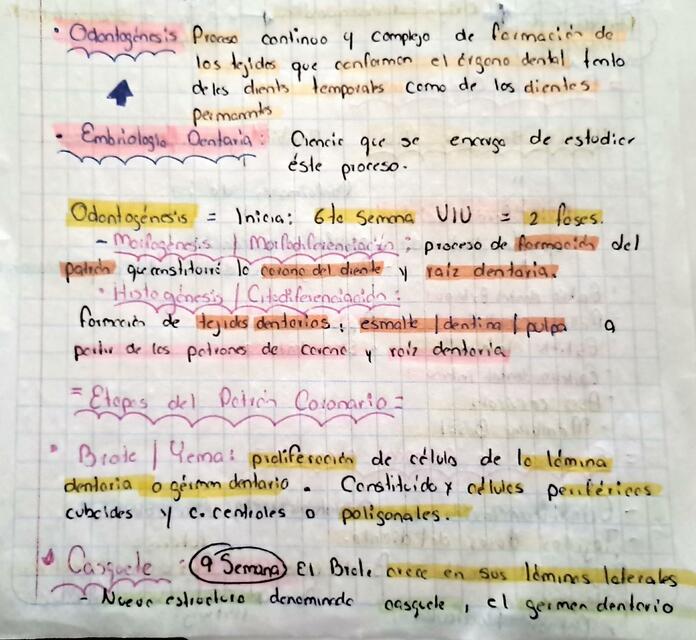 • Odontogénesis Proceso continuo y complejo de formación de
los tejidos que conforman el órgano dental tanto
de los dients temporales como de los dientes
permanentes
• Embriología Dentaria: Ciencia que se encarga de estudiar
éste proceso.
Odontogénesis = Inicia: 6ta Semana VIU = 2 fases.
- Morfogénesis / Morfodiferenciación: proceso de formación del
patrón que constituirá la corona del diente y raíz dentaria.
• Histogénesis / Citodiferenciación:
formación de tejidos dentarios: esmalte / dentina / pulpa a
partir de los patrones de corona y raíz dentaria
= Etapas del Patrón Coronario =
• Brote / Yema: proliferación de célula de la lámina
dentaria o gérmen dentario. Constituido x células periféricas
cuboides y c. centrales o poligonales.
Casquete: 9 Semana El Brote crece en sus láminas laterales
- Nueva estructura denominada casquete, el germen dentario